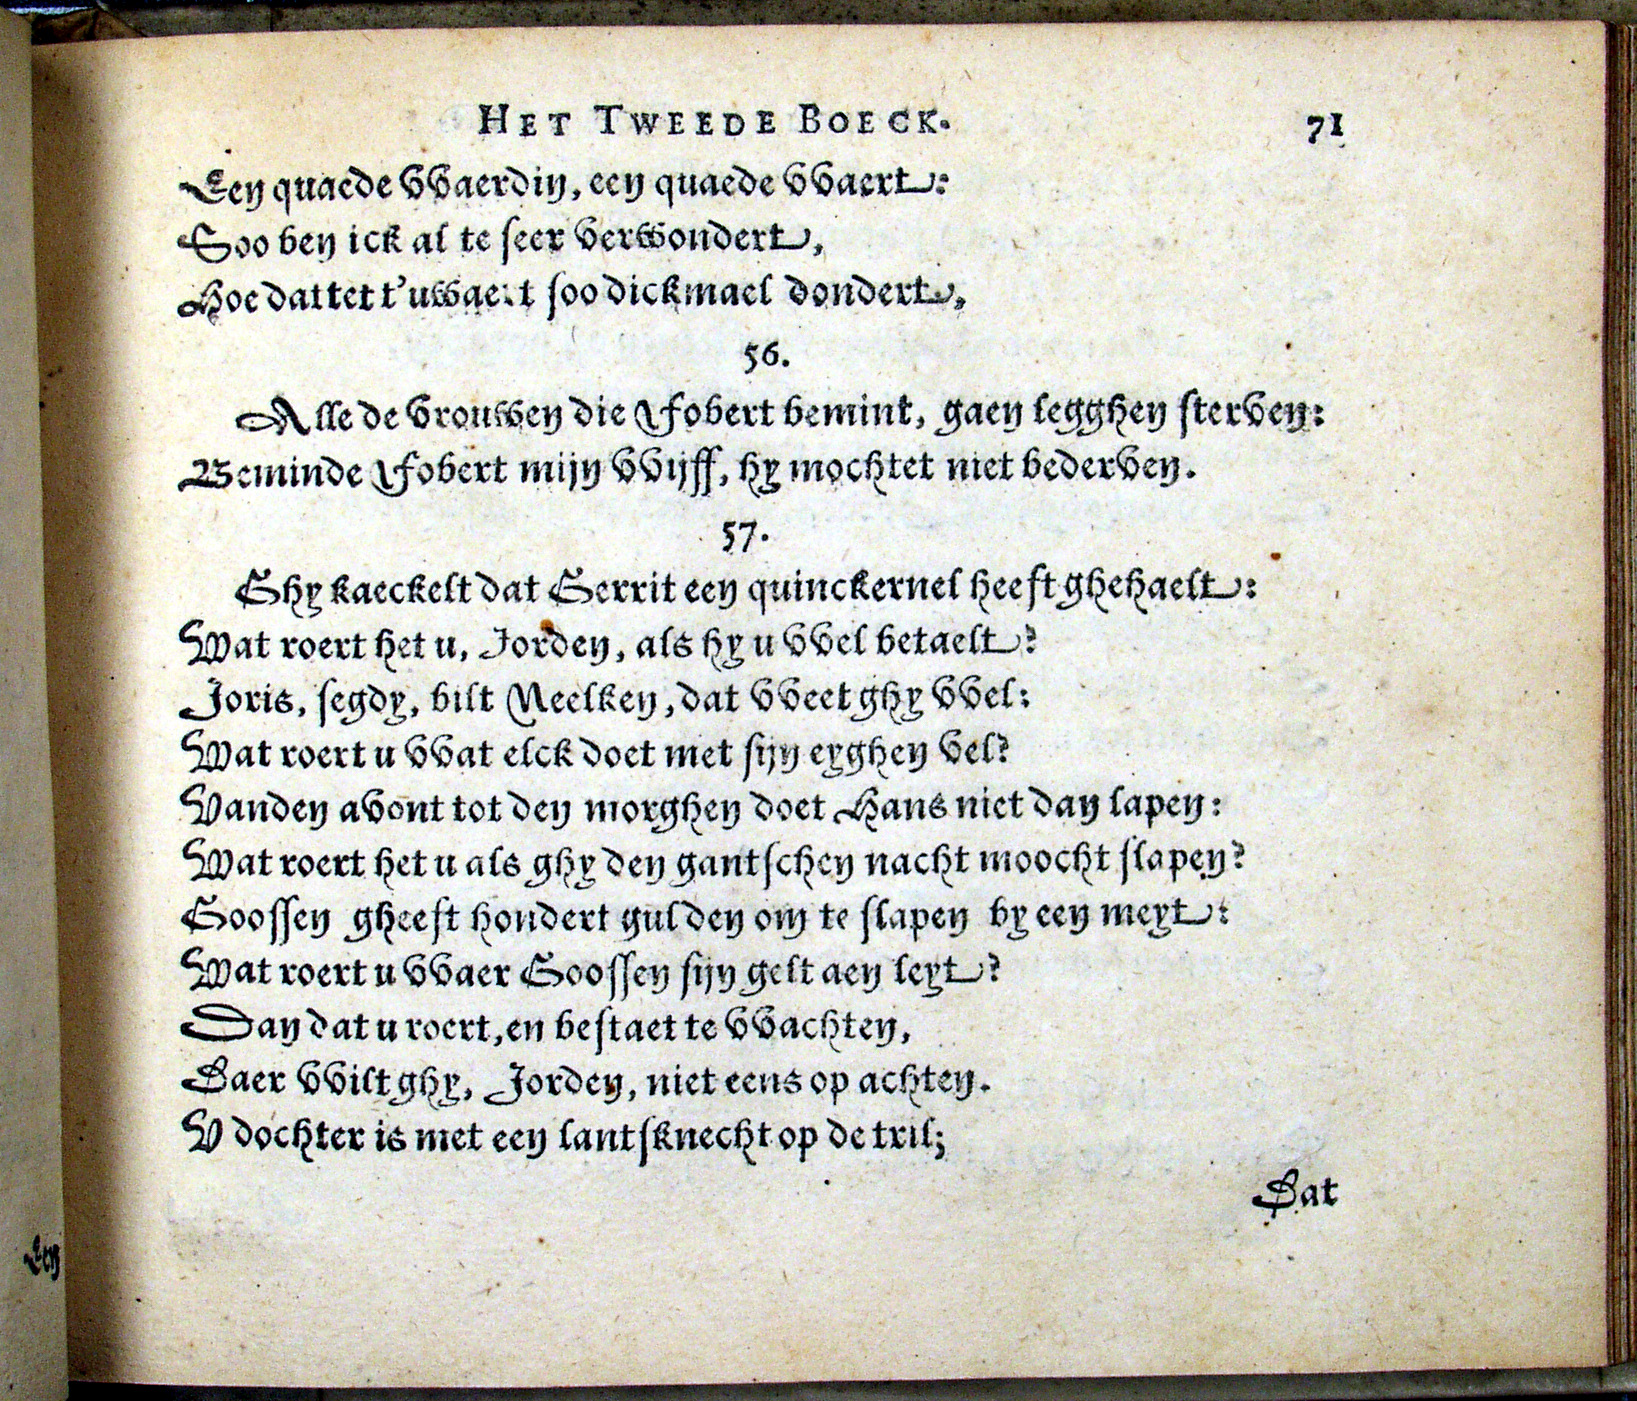 HET TWEEDE BOECK. 71
Een quaede vvaerdin, een quaede vvaert:
Soo ben ick al te seer verwondert,
Hoe dattet t'uwaert soo dickmael dondert.
56.
Alle de vrouwen die Fobert bemint, gaen legghen sterven:
Beminde Fobert mijn vvijff, hy mochtet niet bederven.
57.
Ghy kaeckelt dat Gerrit een quinckernel heeft ghehaelt:
Wat roert het u, Jorden, als hy u vvel betaelt?
Joris, segdy, bilt Neelken, dat vveet ghy vvel:
Wat roert u vvat elck doet met sijn eyghen vel?
Vanden avont tot den morghen doet Hans niet dan lapen:
Wat roert het u als ghy den gantschen nacht moocht slapen?
Goossen gheeft hondert gulden om te slapen by een meyt:
Wat roert u vvaer Goossen sijn gelt aen leyt?
Dan dat u roert, en bestaet te vvachten,
Daer vvilt ghy, Jorden, niet eens op achten.
V dochter is met een lantsknecht op de tril;
Dat
Een